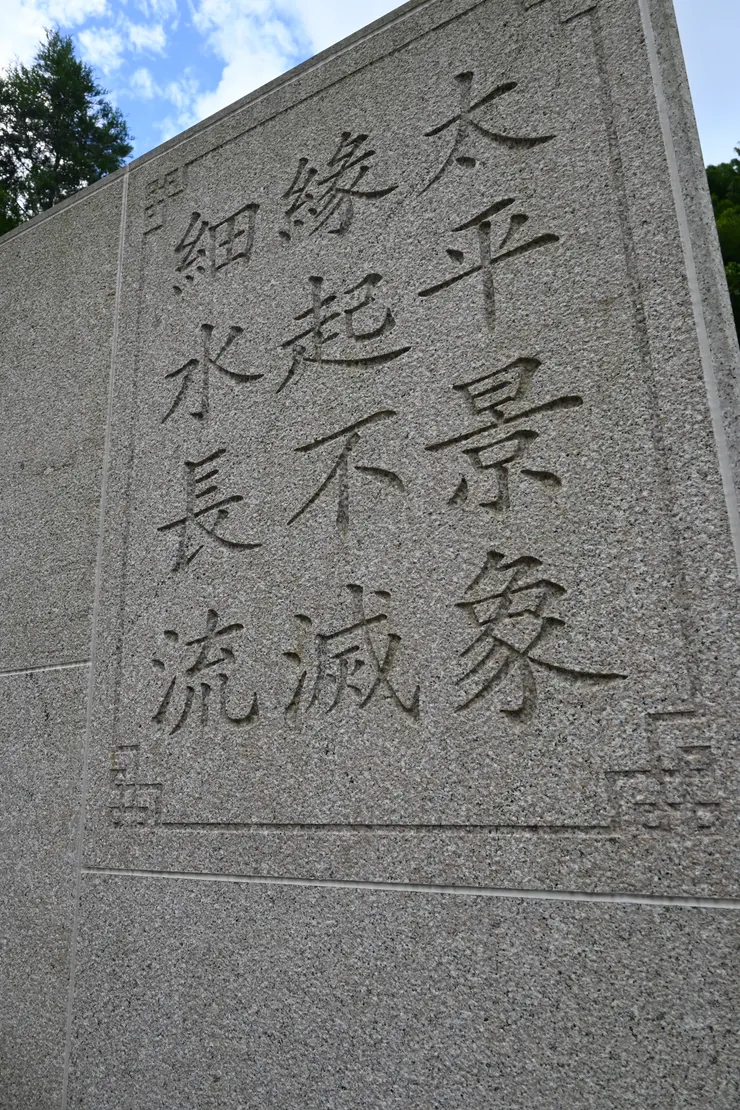 太平景象
緣起不滅
細水長流